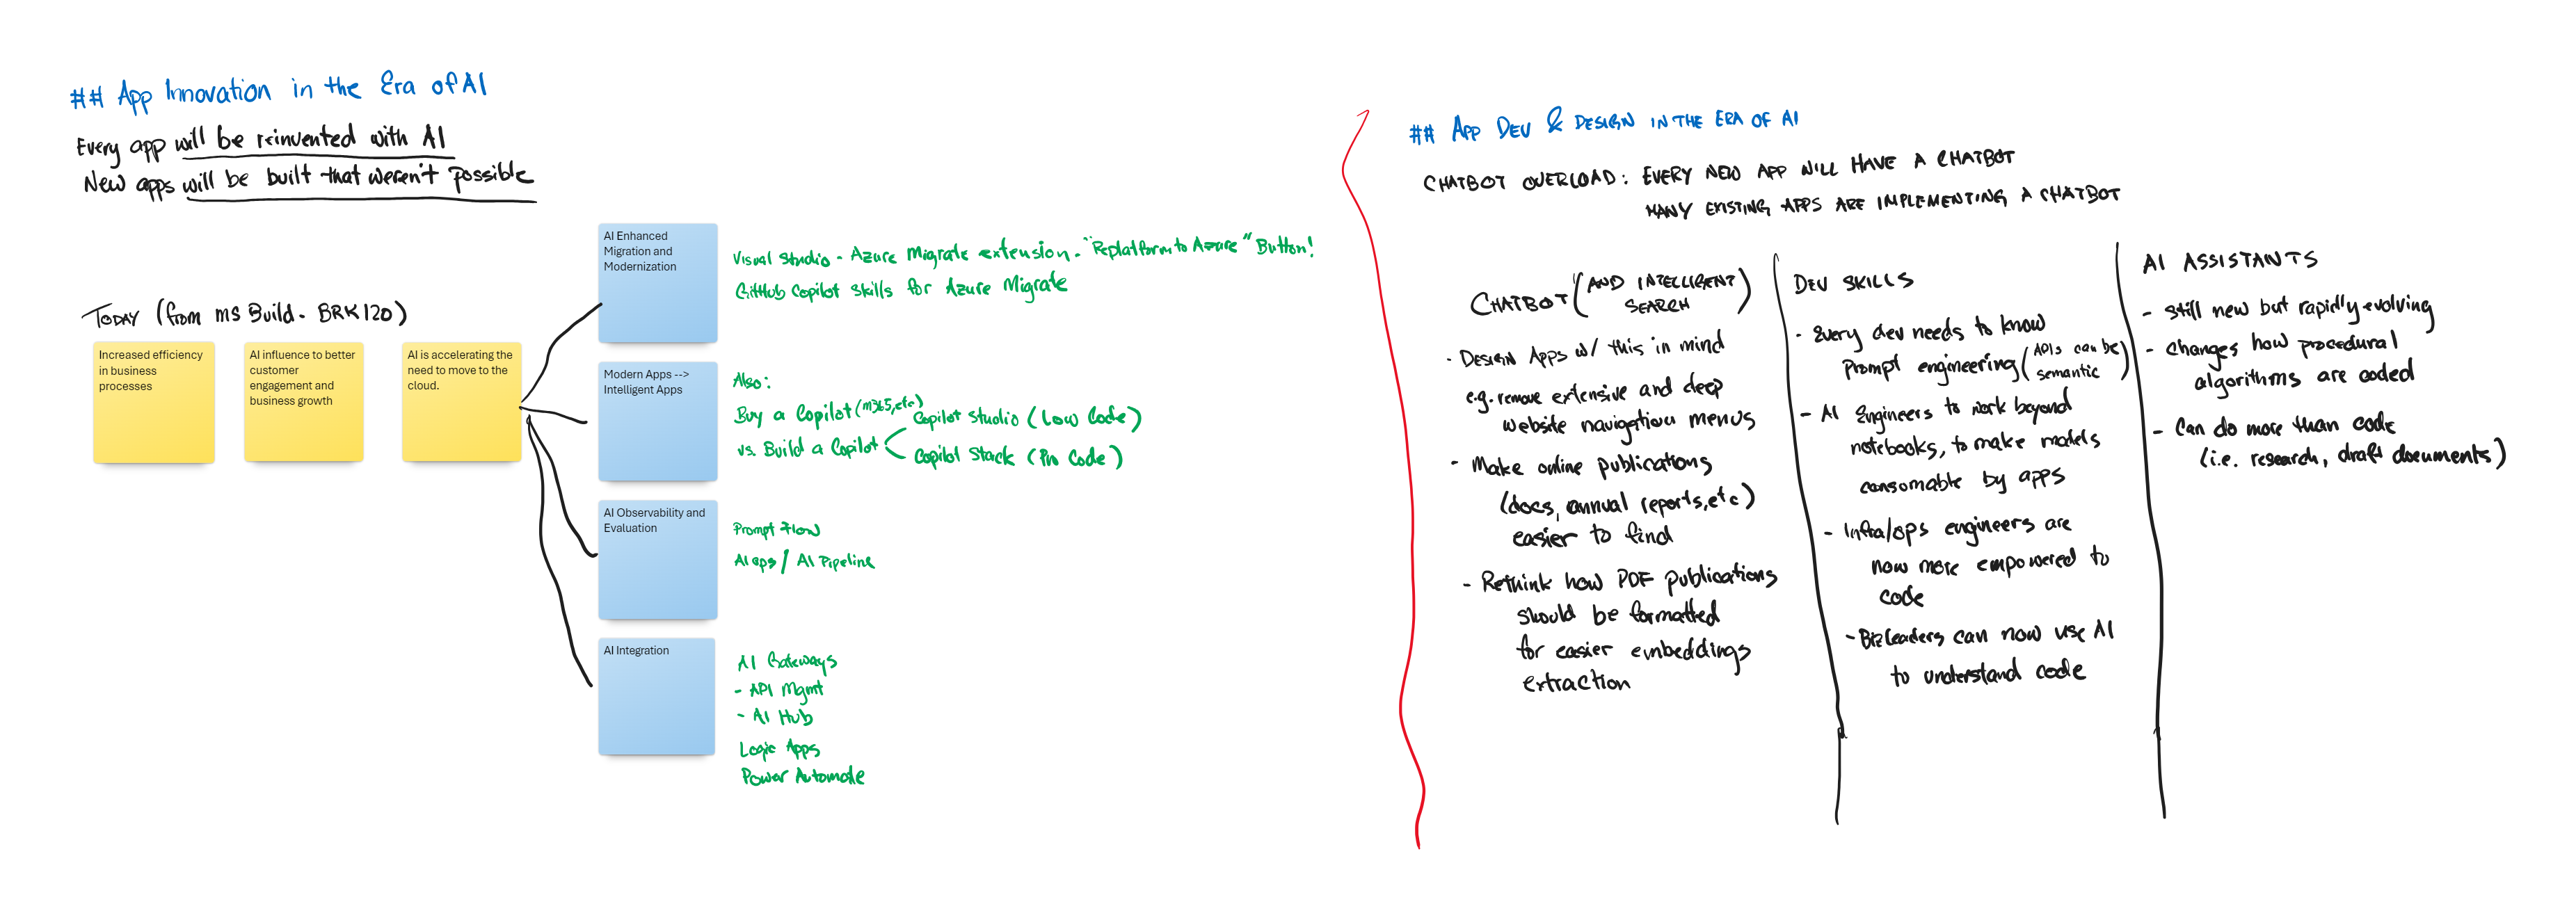 ## App Innovation in the Era of AI
Every app will be reinvented with AI
New apps will be built that weren't possible
TODAY (from MS Build - BRK120)
Increased efficiency
in business
processes
AI influence to better
customer
engagement and
business growth
AI is accelerating the
need to move to the
cloud.
AI Enhanced
Migration and
Modernization
Visual Studio - Azure Migrate extension - "Replatform to Azure" Button!
GitHub Copilot skills for Azure Migrate
Modern Apps -->
Intelligent Apps
Also:
Buy a Copilot (M365, etc)
vs. Build a Copilot
Copilot Studio (Low Code)
Copilot Stack (Pro Code)
AI Observability and
Evaluation
Prompt Flow
AI ops / AI Pipeline
AI Integration
AI Gateways
- API Mgmt
- AI Hub
Logic Apps
Power Automate
## APP DEV & DESIGN IN THE ERA OF AI
CHATBOT OVERLOAD: EVERY NEW APP WILL HAVE A CHATBOT
MANY EXISTING APPS ARE IMPLEMENTING A CHATBOT
CHATBOT (AND INTELLIGENT
SEARCH)
- DESIGN APPS w/ this in mind
e.g. remove extensive and deep
website navigation menus
- Make online publications
(docs, annual reports, etc)
easier to find
- Rethink how PDF publications
should be formatted
for easier embeddings
extraction
DEV SKILLS
- Every dev needs to know
Prompt engineering (APIs can be
semantic)
- AI Engineers to work beyond
notebooks, to make models
consomable by apps
- Infra/ops engineers are
now more empowered to
code
- Biz leaders can now use AI
to understand code
AI ASSISTANTS
- still new but rapidly evolving
- Changes how procedural
algorithms are coded
- Can do more than code
(i.e. research, draft documents)